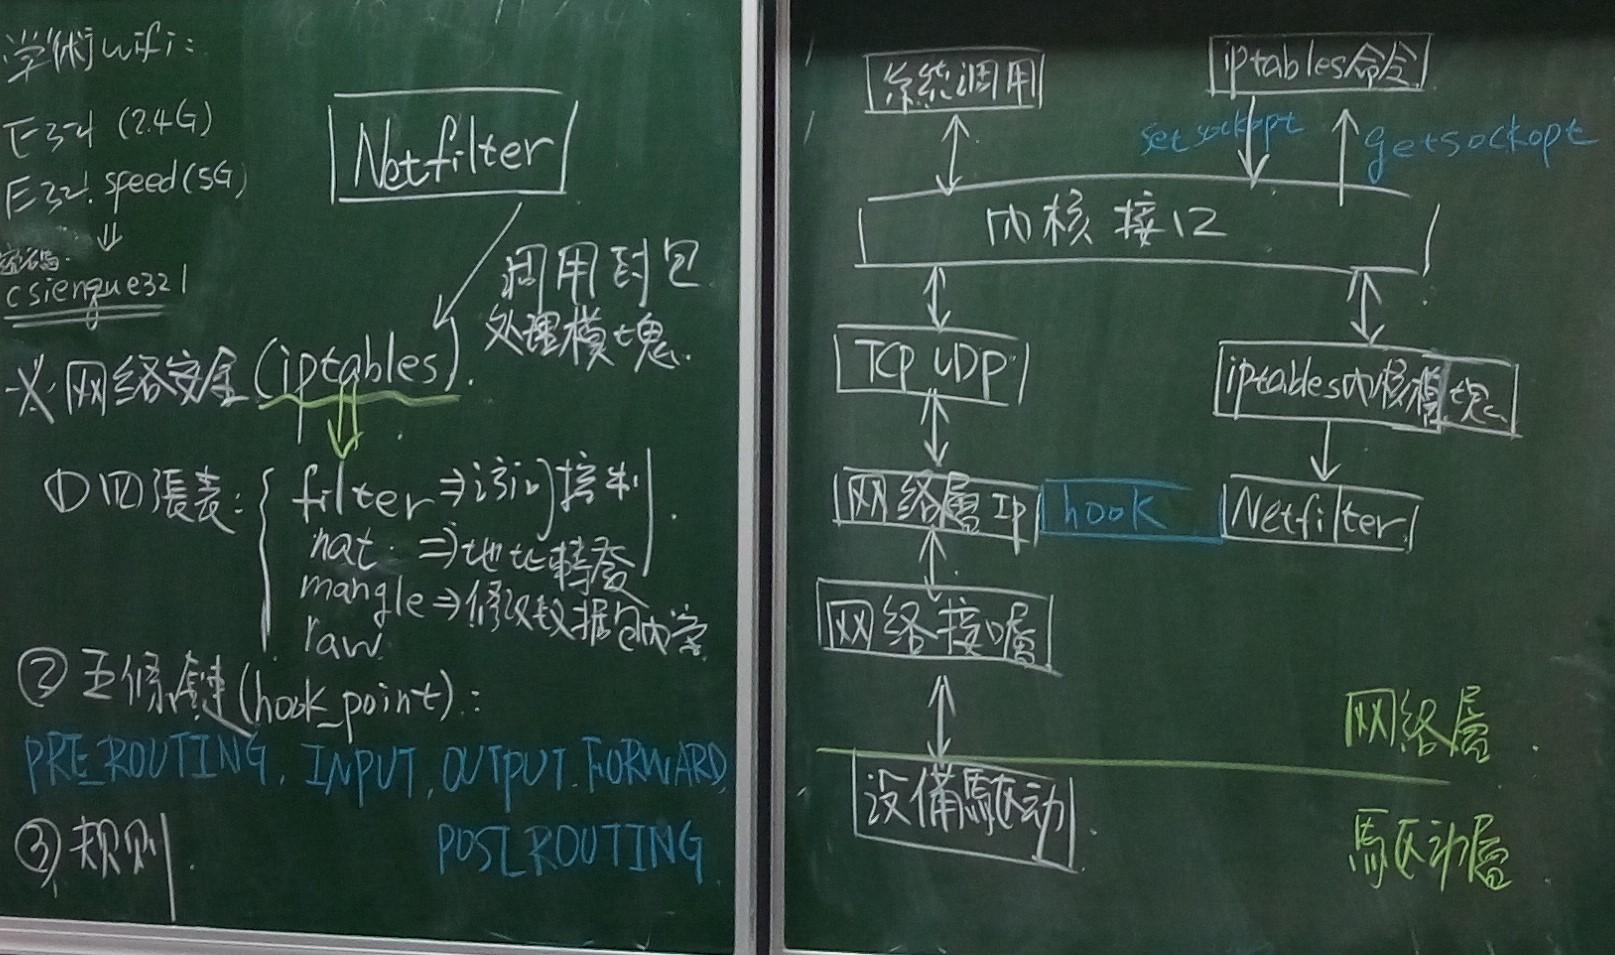 学術wifi:
E321 (2.4G)
E321.speed(5G)
⇓
密码:
csienque321
Netfilter
调用到包
处理模塊.
※ 网络安全(iptables).
① 四張表:
filter⇒访问控制
nat ⇒地址转发
mangle⇒修改数据包内容
raw
② 五條鏈(hook_point):
PRE_ROUTING, INPUT, OUTPUT. FORWARD,
POST_ROUTING
③ 规则
系统调用
iptables命令
setsockopt
getsockopt
内核接口
TCP UDP
iptables内核模塊
网络層Ip
hook
Netfilter
网络接口層
设備驅动
网络層
驅动層